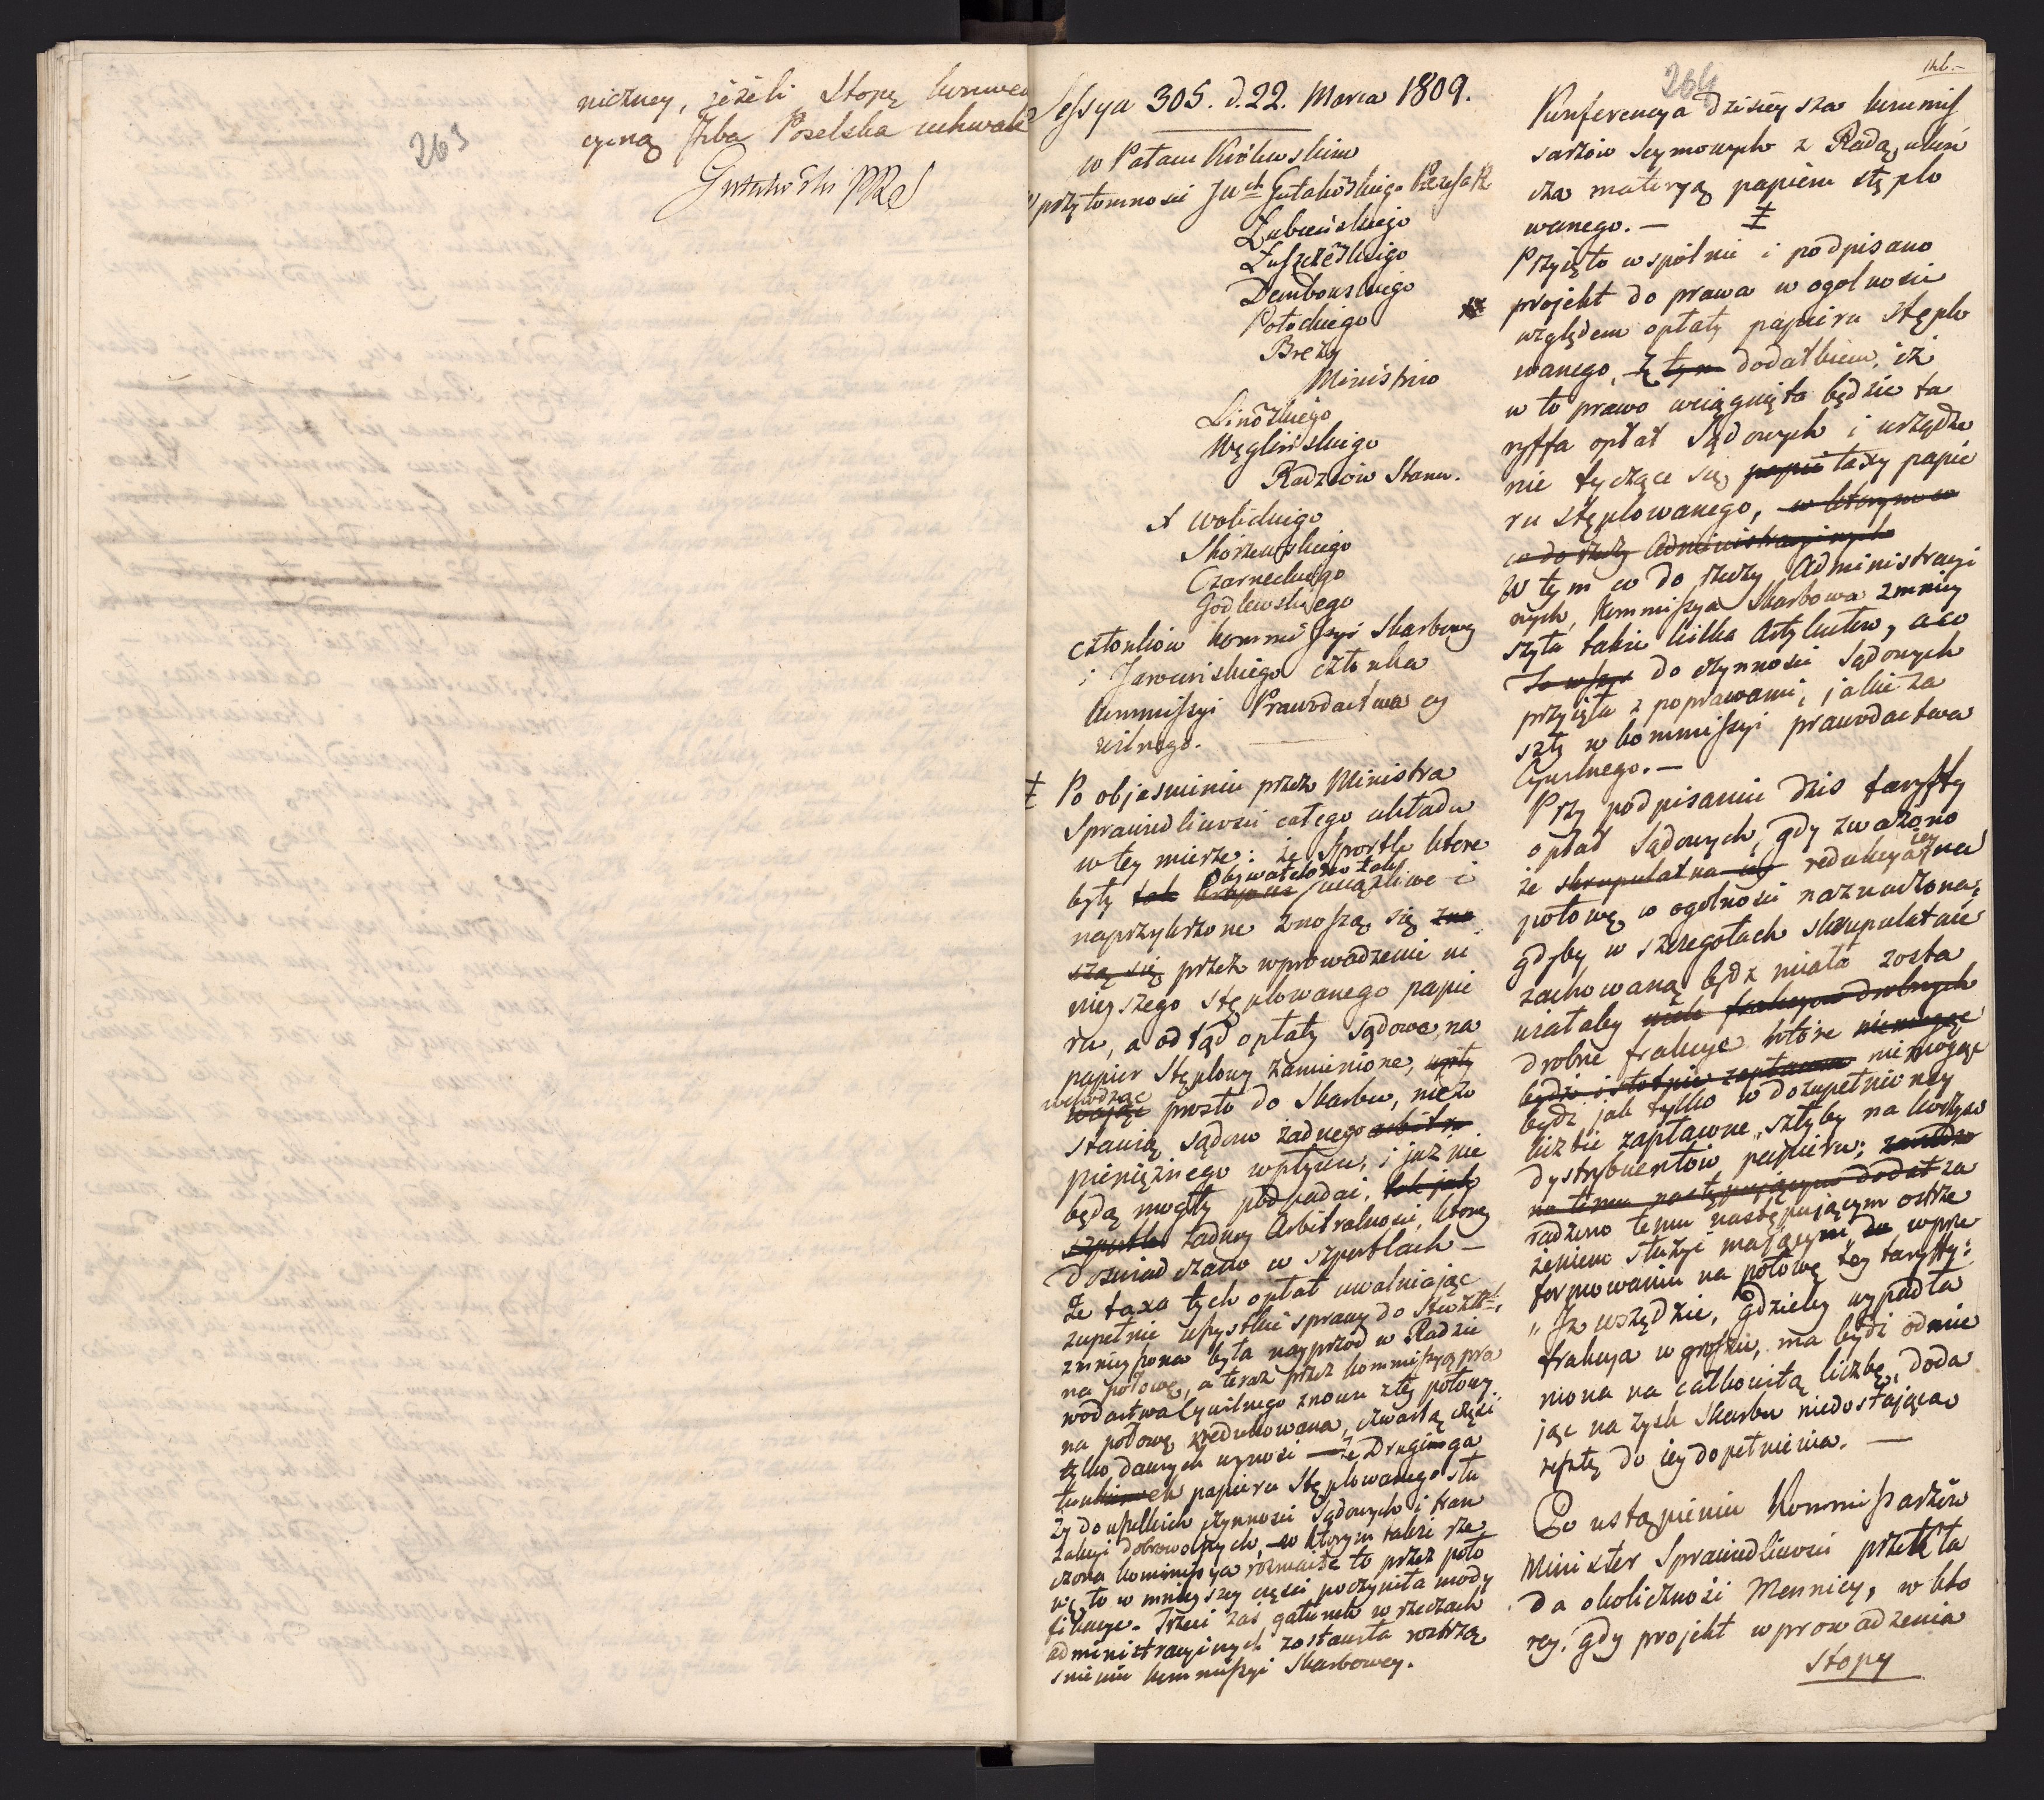 niczney, jeżeli Stopę konwen
cyiną Izba Poselska uchwali
Gutakowski PRS
263
Sessya 305. d. 22. Marca 1809.
w Pałacu Królewskim
W przytomności JWch Gutakowskiego Prezesa R
Łubieńskiego
Łuszczewskiego
Dembowskiego
Potockiego
Brezy
Ministrów
Linowskiego
Węglińskiego
Radzców Stanu.
Wolickiego
Skórzewskiego
Czarneckiego
Godlewskiego
członków kommissyi Skarbowey
i Jaworskiego członka
kommissyi Prawodactwa cy
wilnego.
Ŧ Po objasnieniu przez Ministra
Sprawiedliwości całego układu
w tey mierze: że Sportle które
były tak krajowi Obywatelowi tak uciążliwe i
naprzykrzone znoszą się zno
szą się przez wprowadzenie ni
nieyszego stęplowanego papie
ru, a odtąd opłaty Sądowe, na
papier stęplowy zamienione,
wchodząc prosto do Skarbu, niezo
stawią sądom żadnego
pieniężnego wpływu, i już nie
będą mogły podpadać, tak jak
szportle żadney Arbitralności, którey
doswiadczano w szportlach –
Że taxa tych opłat uwalniając
zupełnie wszystkie sprawy do
zmnieyszona była nayprzód w Radzie
na połowę, a teraz przez kommissyą pra
wodactwa Cywilnego znowu z tey połowy
na połowę zredukowana, czwartą część
tylko dawnych wynosi – że Drugi ga
tunek papieru stęplowanego słu
ży do wszelkich czynności Sądowych i tran
zakcyi dobrowolnych, w którym także rze
czona kommissya rozmaite to przez poło
wę to w mnieyszey części poczyniła mody
fikacye. Trzeci zaś gatunek w rzeczach
administracyinych zostawiła roztrzą
snieniu kommissyi Skarbowey.
264
146.–
Konferencya dzisieysza kommis
sarzów Seymowych z Radą, ukoń
cza materyą papieru stęplo
wanego. – Ŧ
Przyięto wspólnie i podpisano
projekt do prawa w ogólności
względem opłaty papieru stęplo
wanego, z tym dodatkiem, iż
w to prawo wciągnięta będzie ta
ryffa opłat Sądowych i urządze
nie tyczące się papie taxy papie
ru stęplowanego, w którym co
co do rzeczy Administracyinych
W tym co do rzeczy Administracyi
nych, Kommissya Skarbowa zmniey
szyła także kilka Artykułów, a co
do czynności Sądowych
przyięła z poprawami, jakie za
szły w kommissyi prawodactwa
Cywilnego. –
Przy podpisaniu dziś taryffy
opłat Sądowych, gdy zważono
że skrupulatna iey redukcya iey na
połowę w ogólności naznaczona,
gdyby w szczegółach skrupulatnie
zachowaną bydź miała zosta
wiałaby wiele frakcyow drobnych
drobne frakcye które niemogąc
bydź istotnie zapłacone niemogąc
bydź jak tylko w dozupełnioney
liczbie zapłacone, szłyby na korzyść
dystrybuentów papieru; zaradzo
no temu następującym dodat za
radzono temu następującym ostrze
żeniem służyć mającym do wpro
formowaniu na połowę tey taryffy:
„Iż wszędzie, gdzieby wypadła
frakcya w groszu, ma bydź odmie
niona na całkowitą liczbę, doda
jąc na zysk Skarbu niedostającą
resztę do iey dopełnienia. –
Po ustąpieniu Kommissarzów
Minister Sprawiedliwości przekła
da okoliczności Mennicy, w któ
rey, gdy projekt wprowadzenia
Stopy